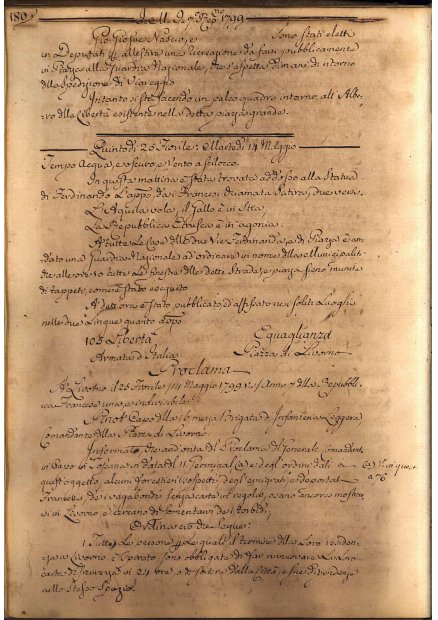 180
1799
Gio: Giosuè Sono stati eletti
in Deputati per allestire una Ricreazione da farsi pubblicamente
in Piazza alla Guardia Nazionale, che s'aspetta dimani di ritorno
dalla spedizione di Viareggio
Intanto si stà facendo un palco quadro intorno all'Albe-
ro della Libertà esistente nella detta piazza grande.
Quintodi 25 Fiorile: Martedì 14 Maggio
Tempo Acqua, e oscuro e Vento a scilocco.
In questa mattina è stato trovato addosso alla Statua
di Ferdinando dai Francesi chiamata Satira, due versi.
L'Aquila vola, il Gallo è in
La Repubblica Etrusca è in agonia.
A tutte le Case delle due Vie Ferdinanda, e di Piazza è an-
dato una Guardia Nazionale ad ordinare in nome della Municipali-
tà che alle ore 10 tutte le finestre delle dette Strade, e piazza sieno munite
di tappeti, come è stato eseguito
A dett'ora è stato pubblicato ed affissato nei soliti Luoghi
nelle due Lingue quanto appo
108 Libertà Eguaglianza
Armata d'Italia Piazza di Livorno
Proclama
A Livorno il 25 Fiorile (14 Maggio 1799 v.s.) Anno 7 della Repubbli-
ca Francese una, e indivisibile
Capo della 16 mezza Brigata di Infanteria Leggera
Comandante della Piazza di Livorno.
Informato, che ad onta del Proclama del Generale Comandan-
te in Capo in Toscana in data del 11 Germinal (a) e degl'ordini dati a
quest'oggetto, alcuni forestieri sospetti, degl'emigrati, e deportati
Francesi, dei vagabondi senza carte in regola, osano ancora mostrar-
si in Livorno, e cercano di fomentarvi dei torbidi,
(a)
a 76
Ordina ciò che segue:
1 Tutte le persone per le quali il termine della loro residen-
za a Livorno è spirato sono obbligate di far rinnovare la loro
carta di sicurezza in 24 ore, o di sortire dalla Città, e sue dipendenze
nello stesso spazio.